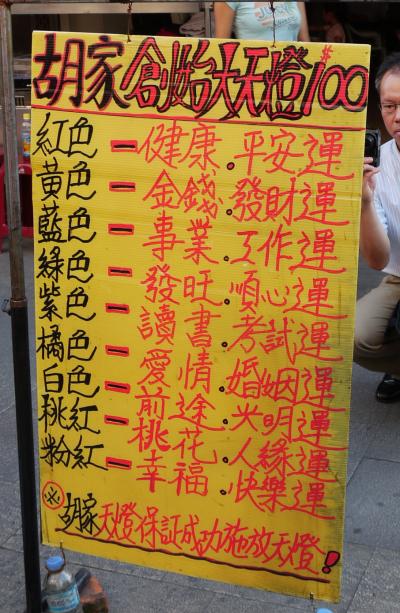 胡家創始大天燈$100
紅色－健康．平安運
黃色－金錢．發財運
藍色－事業．工作運
綠色－發旺．順心運
紫色－讀書．考試運
橘色－愛情．婚姻運
白色－前途．光明運
桃紅－桃花．人緣運
粉紅－幸福．快樂運
胡家天燈保証成功施放天燈!